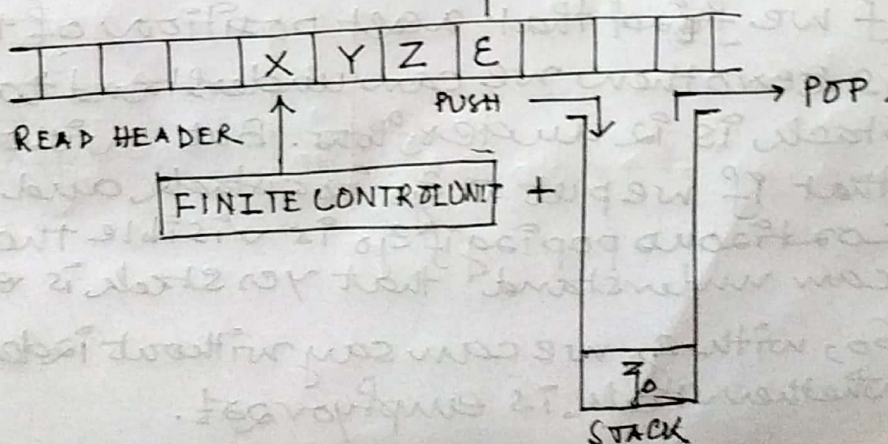 X Y Z ε
PUSH
POP
READ HEADER
FINITE CONTROL UNIT +
Z₀
STACK